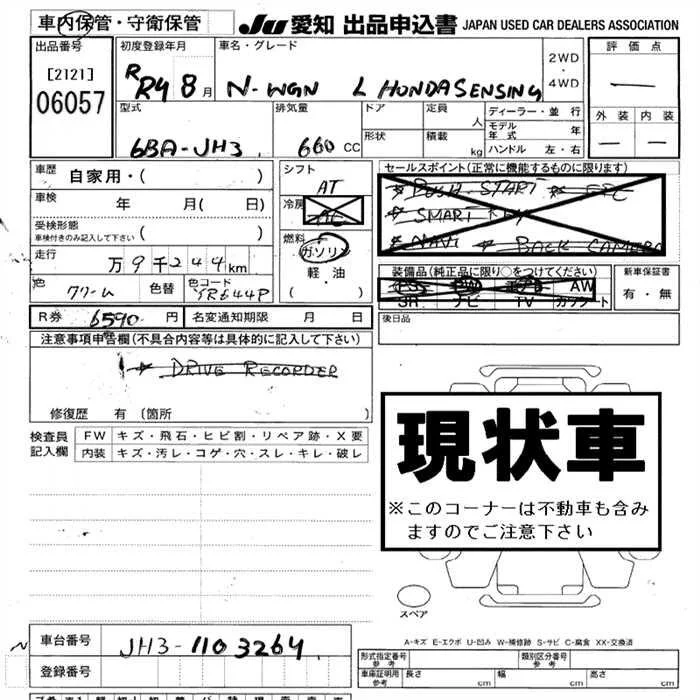 車内保管・守衛保管 JU 愛知 出品申込書 JAPAN USED CAR DEALERS ASSOCIATION
出品番号 初度登録年月 車名・グレード 評価点
[2121] R R4 8月 N-WGN L HONDA SENSING 2WD・4WD
06057
型式 排気量 ドア 定員 ディーラー・並行 外装 内装
人 モデル年式 年
6BA-JH3 660CC 形状 積載 kg ハンドル 左・右
車歴 自家用・( ) シフト AT セールスポイント(正常に機能するものに限ります)
車検 年 月(日) 冷房 AC PUSH START
受検形態 SMART
車検付きのみ記入して下さい ( ) 燃料 NAVI BACK CAMERA
走行 万9千244km ガソリン
軽・油 装備品(純正品に限り○をつけてください) 新車保証書
色 クリーム 色替 色コード YR644P ( ) PS PW AW 有・無
SR ナビ TV カワシート
R券 6590円 名変通知期限 月 日 後日品
注意事項申告欄(不具合内容等は具体的に記入して下さい)
DRIVE RECORDER
修復歴 有(箇所 )
検査員記入欄 FW キズ・飛石・ヒビ割・リペア跡・X要
内装 キズ・汚レ・コゲ・穴・スレ・キレ・破レ
現状車
※このコーナーは不動車も含み
ますのでご注意下さい
スペア
A-キズ E-エクボ U-凹み W-補修跡 S-サビ C-腐食 XX-交換済
車台番号 JH3-1103264
登録番号
型式指定番号 参考 類別区分番号 参考
車庫証明用 参考 長さ cm 幅 cm 高さ cm